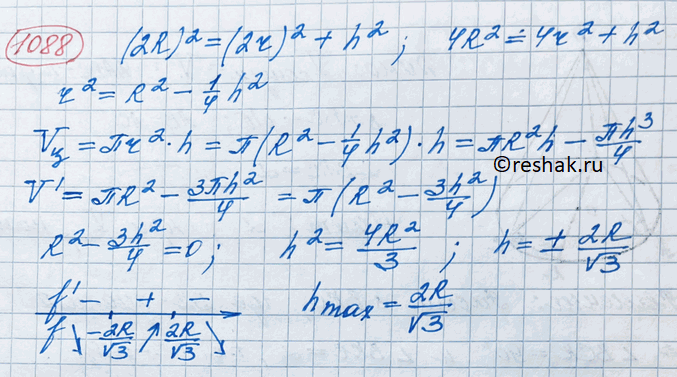 1088 (2R)² = (2r)² + h² ; 4R² = 4r² + h²
r² = R² - 1/4 h²
Vц = πr² · h = π(R² - 1/4 h²) · h = πR²h - πh³/4
©reshak.ru
V' = πR² - 3πh²/4 = π(R² - 3h²/4)
R² - 3h²/4 = 0 ; h² = 4R²/3 ; h = ± 2R/√3
f' - + - hmax = 2R/√3
f ↘ -2R/√3 ↗ 2R/√3 ↘